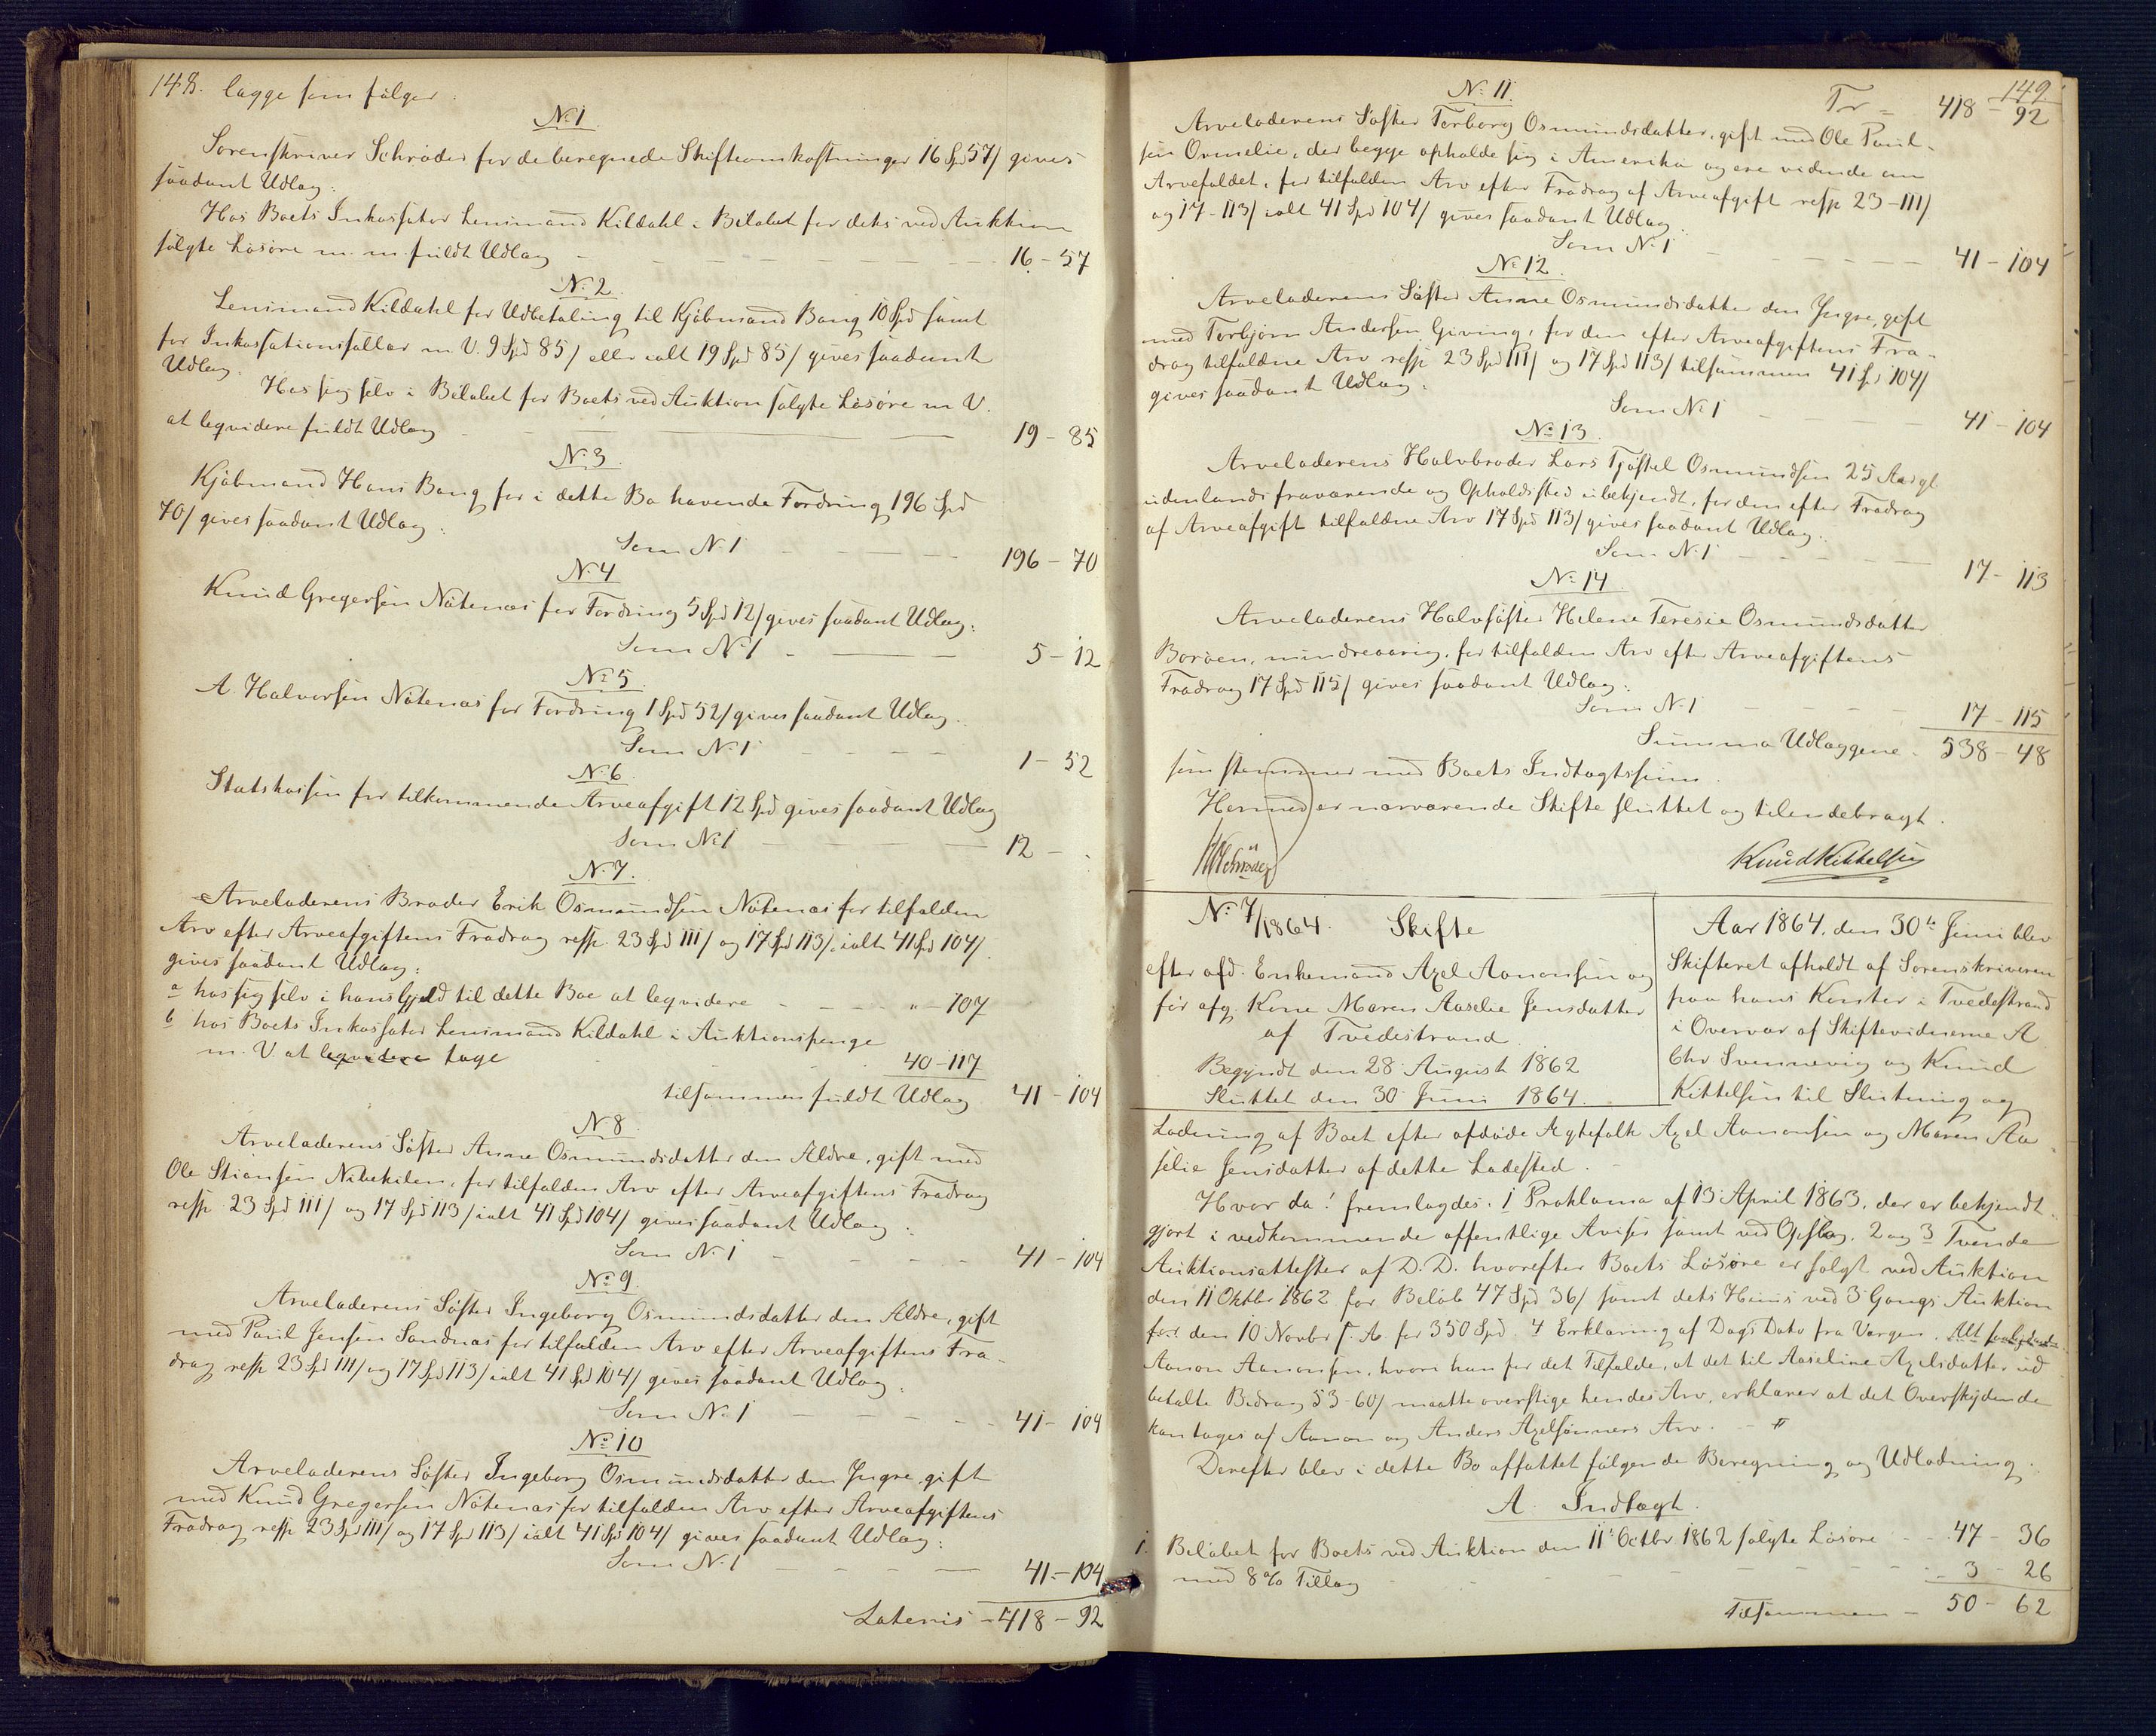 148. lægge som følger:
No 1.
Sorenskriver Schrøder for de beregnede Skifteomkostninger 16 Spd 57/ gives
saadant Udlæg:
Hos Boets Inkassator Lensmand Kildahl i Beløbet for dets ved Auktion
solgte Løsøre m. m. fuldt Udlæg - - - 16 - 57
No 2.
Lensmand Kildahl for Udbetaling til Kjøbmand Bang 10 Spd samt
for Inkassationssallær m. V. 9 Spd 85/ eller ialt 19 Spd 85/ gives saadant
Udlæg.
Hos sig selv i Beløbet for Boets ved Auktion solgte Løsøre m. V.
at leqvidere fuldt Udlæg - - - 19 - 85
No 3.
Kjøbmand Hans Bang for i dette Bo havende Fordring 196 Spd
70/ gives saadant Udlæg:
Som No 1 - - - 196 - 70
No 4
Knud Gregersen Nötenæs for Fordring 5 Spd 12/ gives saadant Udlæg:
Som No 1 - - - 5 - 12
No 5.
A. Halvorsen Nötenæs for Fordring 1 Spd 52/ gives saadant Udlæg:
Som No 1 - - - 1 - 52
No 6.
Statskassen for tilkommende Arveafgift 12 Spd gives saadant Udlæg
Som No 1 - - - 12 - .
No 7.
Arveladerens Broder Erik Osmundsen Nötenæs for tilfalden
Arv efter Arveafgiftens Fradrag resp. 23 Spd 111/ og 17 Spd 113/, ialt 41 Spd 104/.
gives saadant Udlæg:
a hos sig selv i hans Gjeld til dette Boe at leqvidere - - - " - 107
b hos Boets Inkassator Lensmand Kildahl i Auktionspenge
m. V. at leqvidere tage 40 - 117
tilsammen fuldt Udlæg 41 - 104
No 8.
Arveladerens Söster Anne Osmundsdatter den Ældre, gift med
Ole Stiansen Nibekilen, for tilfalden Arv efter Arveafgiftens Fradrag
resp. 23 Spd 111/ og 17 Spd 113/ ialt 41 Spd 104/ gives saadant Udlæg:
Som No 1 - - - 41 - 104
No 9.
Arveladerens Söster Ingeborg Osmundsdatter den Ældre, gift
med Poul Jensen Sandnæs for tilfalden Arv efter Arveafgiftens Fra-
drag resp. 23 Spd 111/ og 17 Spd 113/ ialt 41 Spd 104/ gives saadant Udlæg:
Som No 1 - - - 41 - 104
No 10
Arveladerens Söster Ingeborg Osmundsdatter den Yngre, gift
med Knud Gregersen Nötenæs for tilfalden Arv efter Arveafgiftens
Fradrag resp. 23 Spd 111/ og 17 Spd 113/ ialt 41 Spd 104/ gives saadant Udlæg:
Som No 1 - - - 41 - 104
Lateris - 418 - 92
149.
No 11. Tr = 418 - 92
Arveladerens Söster Torborg Osmundsdatter, gift med Ole Poul-
sen Ormelie, der begge opholde sig i Amerika og ere vidende om
Arvefaldet, for tilfalden Arv efter Fradrag af Arveafgift resp 23 - 111/
og 17 - 113/ ialt 41 Spd 104/ gives saadant Udlæg:
Som No 1 - - - 41 - 104
No 12.
Arveladerens Söster Anne Osmundsdatter den Yngre, gift
med Torbjørn Andersen Giving, for dem efter Arveafgiftens Fra-
drag tilfaldne Arv resp 23 Spd 111/ og 17 Spd 113/ tilsammen 41 Spd 104/
gives saadant Udlæg:
Som No 1 - - - 41 - 104
No 13.
Arveladerens Halvbroder Lars Tjöstel Osmundsen 25 Aar gl
udenlands fraværende og Opholdssted ubekjendt, for den efter Fradrag
af Arveafgift tilfaldne Arv 17 Spd 113/ gives saadant Udlæg:
Som No 1 - - - 17 - 113
No 14.
Arveladerens Halvsöster Helene Teresie Osmundsdatter
Boröen, mindreaarig, for tilfalden Arv efter Arveafgiftens
Fradrag 17 Spd 115/ gives saadant Udlæg:
Som No 1 - - - 17 - 115
Summa Udlæggene - 538 - 48
som stemmer med Boets Indtægtssum.
Hermed er nærværende Skifte sluttet og tilendebragt.
Schrøder
Knud Kittelsen
No 7/1864. Skifte
efter afd. Enkemand Axel Aanonsen og
før afg. Kone Maren Aaselie Jensdatter
af Tvedestrand
Begyndt den 28 August 1862
Sluttet den 30 Juni 1864.
Aar 1864, den 30te Juni blev
Skifteret afholdt af Sorenskriveren
paa hans Kontor i Tvedestrand
i Overvær af Skiftevidnerne A.
Chr Svennevig og Knud
Kittelsen til Slutning og
Lodning af Boet efter afdøde Ægtefolk Axel Aanonsen og Maren Aa-
selie Jensdatter af dette Ladested.
Hvor da! fremlagdes: 1 Proklama af 13 April 1863, der er bekjendt-
gjort i vedkommende offentlige Aviser samt ved Opslag. 2 og 3 Tvende
Auktionsattester af D. D. hvorefter Boets Løsøre er solgt ved Auktion
den 11 Oktbr 1862 for Beløb 47 Spd 36/ samt dets Huus ved 3 Gangs Auktion
den 10 Novbr s. A. for 350 Spd. 4 Erklæring af Dags Dato fra Værgen
Aanon Aanonsen, hvori han for det Tilfælde, at det til Aaseline Axelsdatter ud-
betalte Bidrag 53 - 60/ maatte overstige hendes Arv, erklærer at det Overskydende
kan tages af Aanon og Anders Axelsønners Arv. -
Derefter blev i dette Bo affattet følgende Beregning og Udlodning.
A. Indtægt.
1. Beløbet for Boets ved Auktion den 11' Octbr 1862 solgte Løsøre - - 47 - 36
med 8 % Tillæg - - - 3 - 26
Tilsammen - 50 - 62